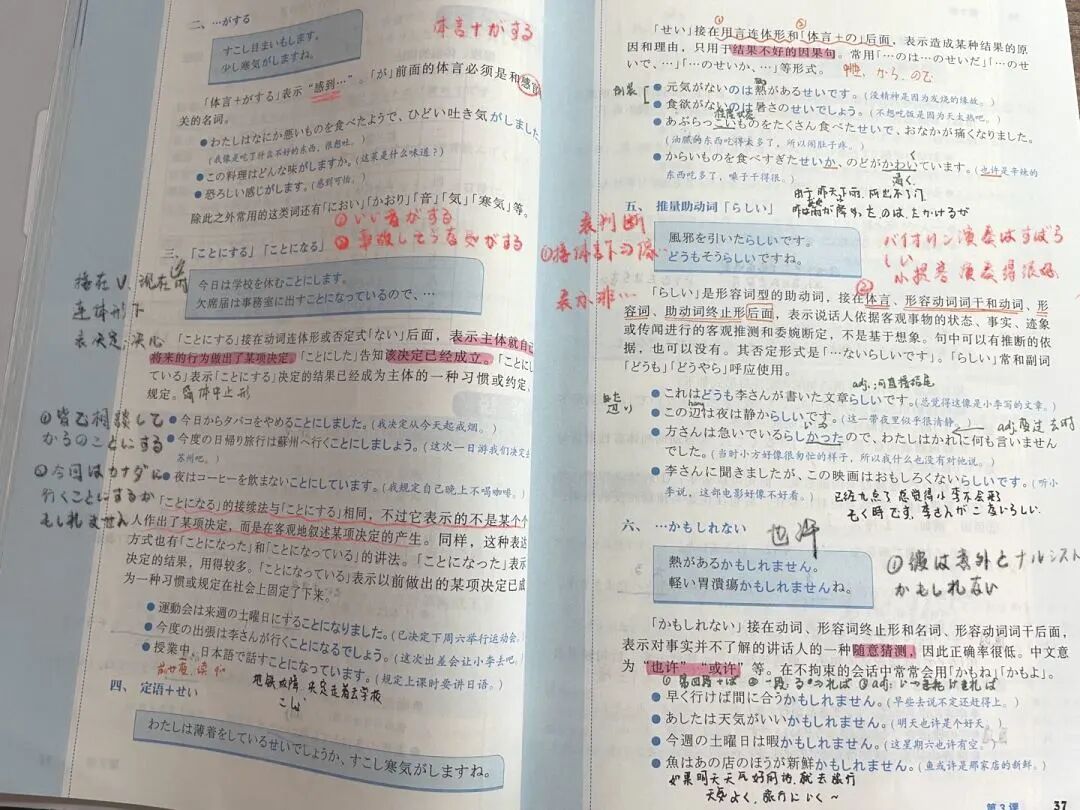 二、…がする
体言+がする
すこし目まいもします。
少し寒气がしますね。
「体言+がする」表示“感到…”。「が」前面的体言必须是和感官
关的名词。
●わたしはなにか悪いものを食べたようで、ひどい吐き気がしました
(我像是吃了什么不好的东西,很想吐。)
●この料理はどんな味がしますか。(这菜是什么味道?)
●恐ろしい感じがします。(感到可怕。)
除此之外常用的这类词还有「におい」「かおり」「音」「気」「寒気」等。
①いい音がする
三、「ことにする」「ことになる」
接在V,现在时
连体形下
表决定,决心
今日は学校を休むことにします。
欠席届は事務室に出すことになっているので、…
「ことにする」接在动词连体形或否定式「ない」后面,表示主体就自己
将来的行为做出了某项决定。「ことにした」告知该决定已经成立。「ことにし
ている」表示「ことにする」决定的结果已经成为主体的一种习惯或约定、
规定。
●今日からタバコをやめることにしました。(我决定从今天起戒烟。)
●今度の日帰り旅行は蘇州へ行くことにしましょう。(这次一日游我们决定去
苏州吧。)
●夜はコーヒーを飲まないことにしています。(我规定自己晚上不喝咖啡。)
②今回はカナダに
行くことにするか
もしれません
「ことになる」的接续法与「ことにする」相同,不过它表示的不是某个个
人作出了某项决定,而是在客观地叙述某项决定的产生。同样,这种表达
方式也有「ことになった」和「ことになっている」的讲法。「ことになった」表示
决定的结果,用得较多。「ことになっている」表示以前做出的某项决定已成
为一种习惯或规定在社会上固定了下来。
●運動会は来週の土曜日にすることになりました。(已决定下周六举行运动会。
●今度の出張は李さんが行くことになるでしょう。(这次出差会让小李去吧。)
●授業中、日本語で話すことになっています。(规定上课时要讲日语。)
四、定语+せい
わたしは薄着をしているせいでしょうか、すこし寒気がしますね。
「せい」接在用言连体形和「体言+の」后面,表示造成某种结果的原
因和理由,只用于结果不好的因果句。常用「…のは…のせいだ」「…のせ
いで、…」「…のせいか、…」等形式。
倒装
●元気がないのは熱があるせいです。(没精神是因为发烧的缘故。)
●食欲がないのは暑さのせいでしょう。(不想吃饭是因为天太热吧。)
●あぶらっこいものをたくさん食べたせいで、おなかが痛くなりました。
(油腻的东西吃得太多了,所以闹肚子疼。)
●からいものを食べすぎたせいか、のどがかわいています。(也许是辛辣的
东西吃多了,嗓子干得很。)
五、推量助动词「らしい」
表判断
風邪を引いたらしいです。
どうもそうらしいですね。
バイオリン演奏はすばら
しい
小提琴演奏得很好
「らしい」是形容词型的助动词,接在体言、形容动词词干和动词、形
容词、助动词终止形后面,表示说话人依据客观事物的状态、事实、迹象
或传闻进行的客观推测和委婉断定,不是基于想象。句中可以有推断的依
据,也可以没有。其否定形式是「…ないらしいです」。「らしい」常和副词
「どうも」「どうやら」呼应使用。
●これはどうも李さんが書いた文章らしいです。(总觉得这像是小李写的文章。)
●この辺は夜は静からしいです。(这一带夜里似乎很清静。)
●方さんは急いでいるらしかったので、わたしはかれに何も言いません
でした。(当时小方好像很匆忙的样子,所以我什么也没有对他说。)
●李さんに聞きましたが、この映画はおもしろくないらしいです。(听小
李说,这部电影好像不好看。)
六、…かもしれない
也许
熱があるかもしれません。
軽い胃潰瘍かもしれませんね。
①彼は意外とナルシスト
かもしれない
「かもしれない」接在动词、形容词终止形和名词、形容动词词干后面,
表示对事实并不了解的讲话人的一种随意猜测,因此正确率很低。中文意
为“也许”“或许”等。在不拘束的会话中常常会用「かもね」「かもよ」。
●早く行けば間に合うかもしれません。(早些去说不定还赶得上。)
●あしたは天気がいいかもしれません。(明天也许是个好天。)
●今週の土曜日は暇かもしれません。(这星期六也许有空。)
●魚はあの店のほうが新鮮かもしれません。(鱼或许是那家店的新鲜。)
如果明天天气好的话,就去旅行
第3课 37